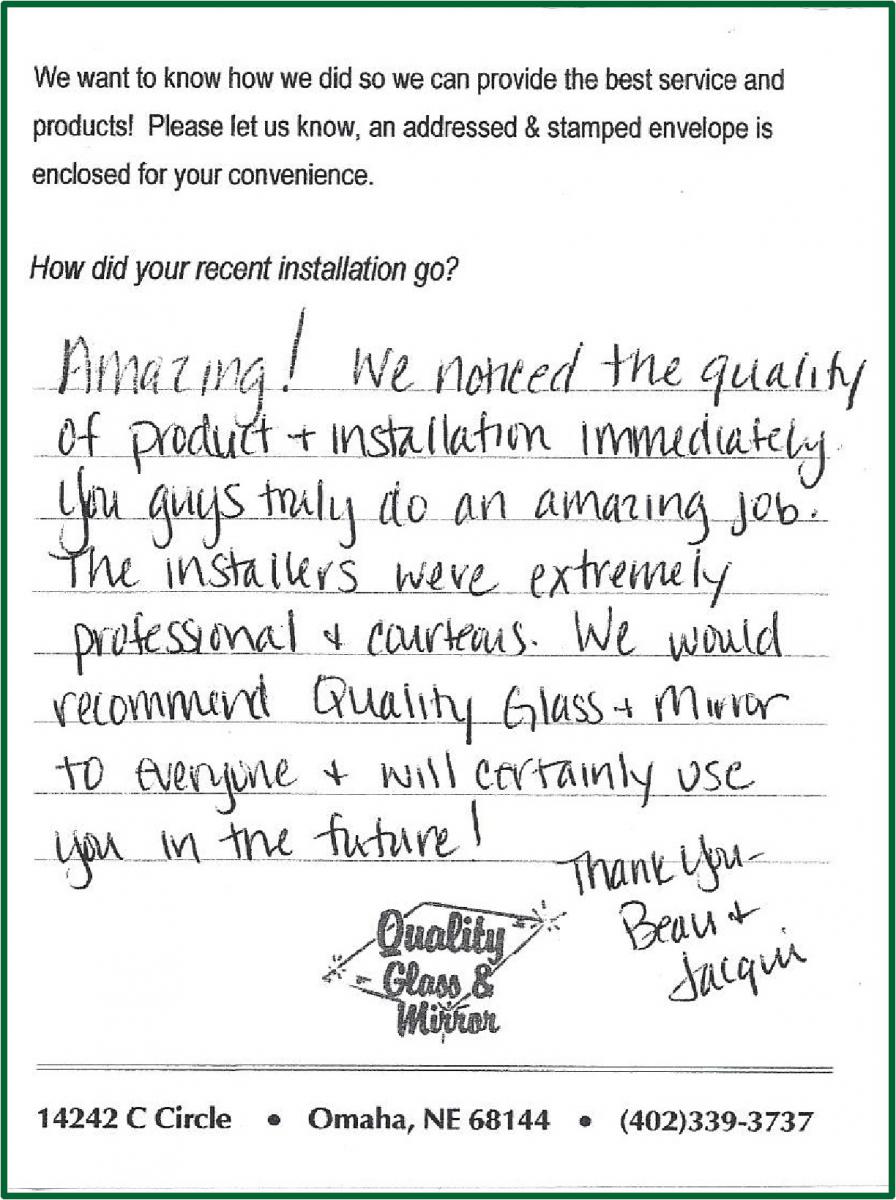 We want to know how we did so we can provide the best service and
products! Please let us know, an addressed & stamped envelope is
enclosed for your convenience.
How did your recent installation go?
Amazing! We noticed the quality
of product + installation immediately.
You guys truly do an amazing job.
The installers were extremely
professional + courteous. We would
recommend Quality Glass + Mirror
to everyone + will certainly use
you in the future!
Thank You-
Beau +
Jacqui
Quality
Glass &
Mirror
14242 C Circle • Omaha, NE 68144 • (402)339-3737